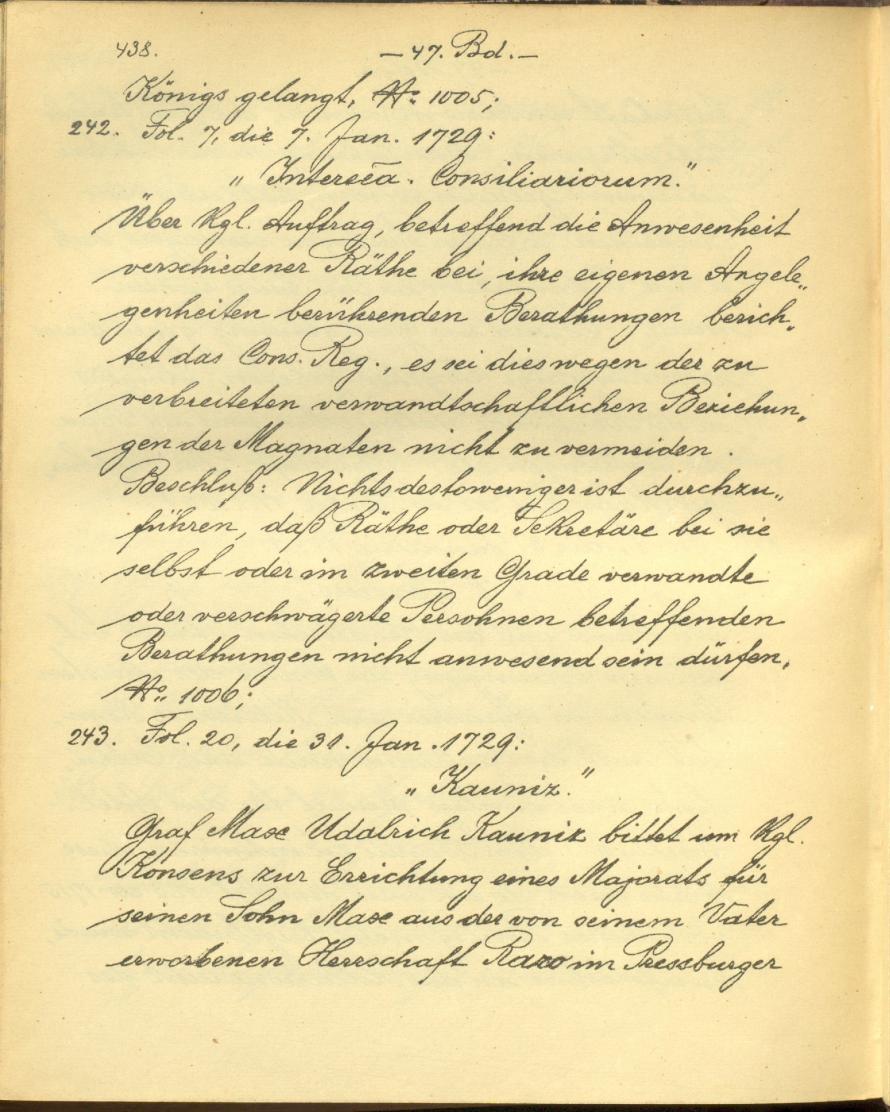 438. — 47. Bd. —
Königs gelangt, No. 1005;
242. Fol. 7, die 7. Jan. 1729:
„ Intereẽa. Consiliariorum."
Über Kgl. Auftrag, betreffend die Anwesenheit
verschiedener Räthe bei, ihre eigenen Angele„
genheiten berührenden Berathungen berich„
tet das Cons. Reg., es sei dies wegen der zu
verbreiteten verwandtschaftlichen Beziehun„
gen der Magnaten nicht zu vermeiden.
Beschluß: Nichtsdestoweniger ist durchzu„
führen, daß Räthe oder Sekretäre bei sie
selbst oder im zweiten Grade verwandte
oder verschwägerte Persohnen betreffenden
Berathungen nicht anwesend sein dürfen,
No. 1006;
243. Fol. 20, die 31. Jan. 1729:
„ Kauniz."
Graf Max Udalrich Kauniz bittet um Kgl.
Konsens zur Errichtung eines Majorats für
seinen Sohn Max aus der von seinem Vater
erworbenen Herrschaft Razo im Pressburger